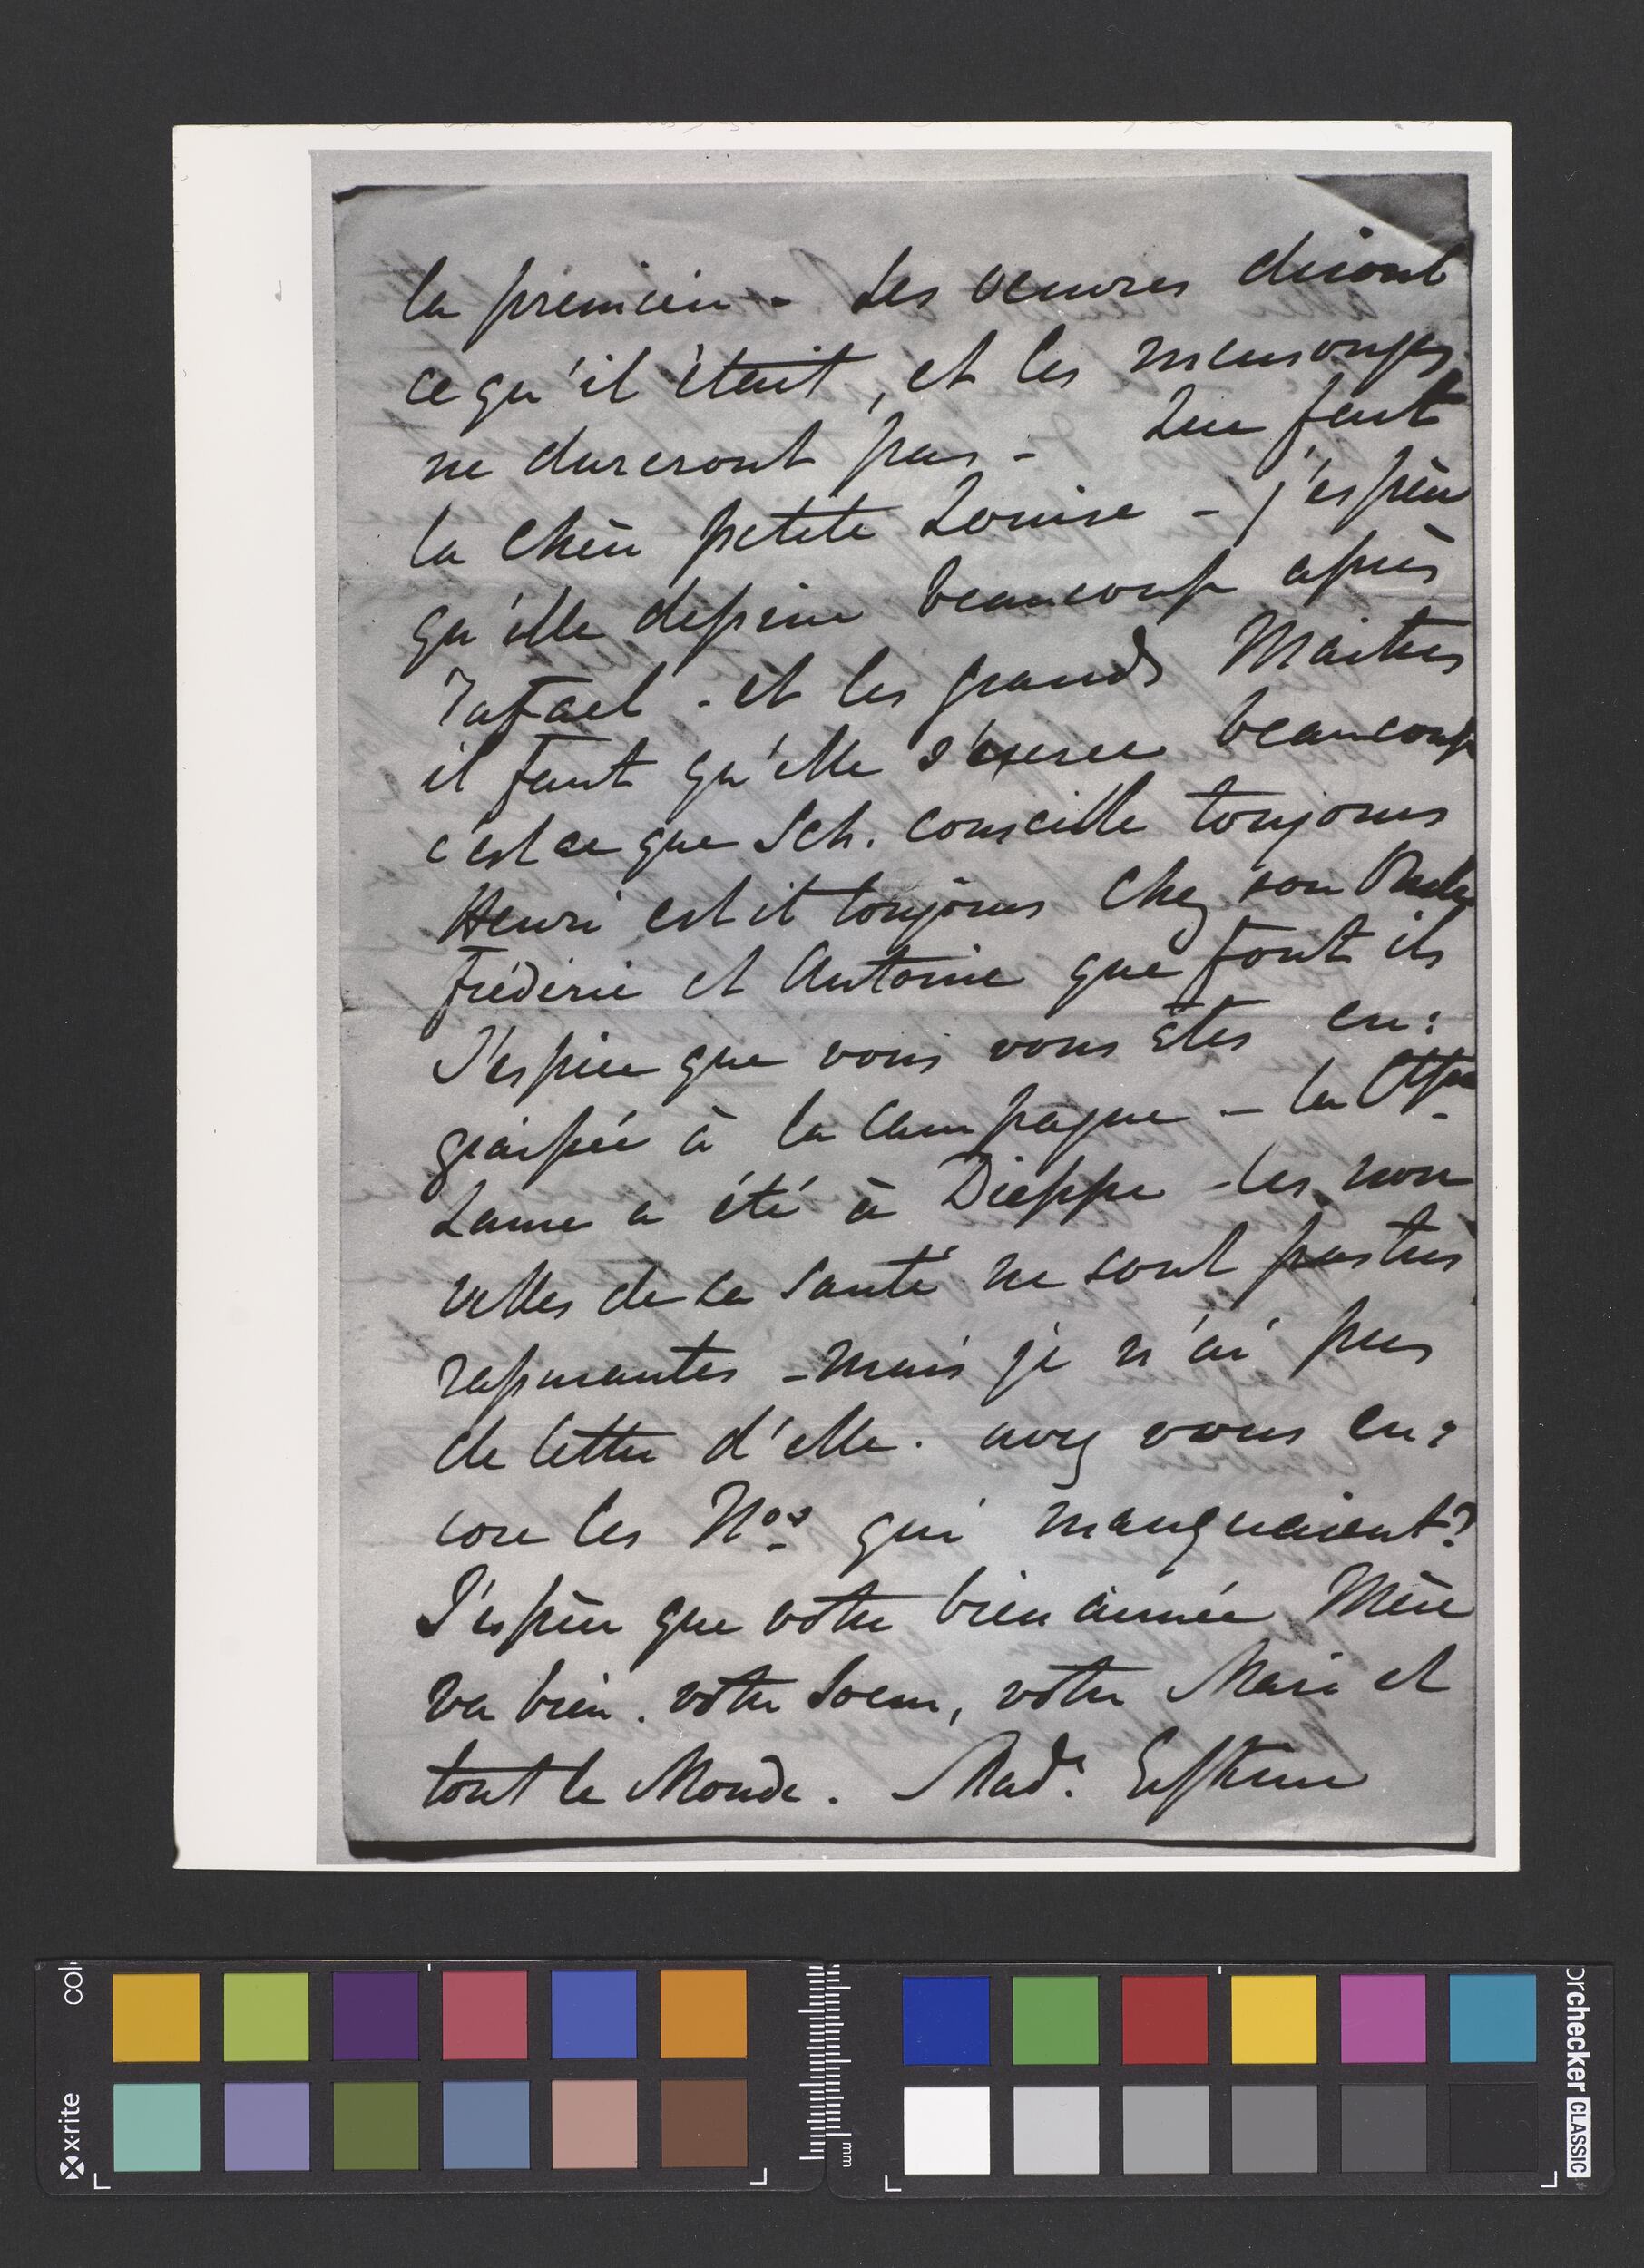 la premiere - Les oeuvres diront
ce qu'il était, et les mensonges
ne dureront pas - Que fait
la chère petite Louise - j'espère
qu'elle dessine beaucoup après
Rafael - et les grands Maitres
il faut qu'elle s'exerce beaucoup
c'est ce que Sch. conseille toujours
Henri est il toujours chez son
Fréderic et Antoine que font ils
J'espère que vous vous êtes en:
graissée à la campagne - la
Laure a été à Dieppe - les nou
velles de sa santé ne sont pas très
rassurantes - mais je n'ai pas
de lettre d'elle. avez vous en:
core les Nos qui manquaient?
J'espère que votre bien aimée Mère
va bien. votre Soeur, votre Mari et
tout le Monde. Mad. Erskine
col
x·rite
mm
orchecker CLASSIC